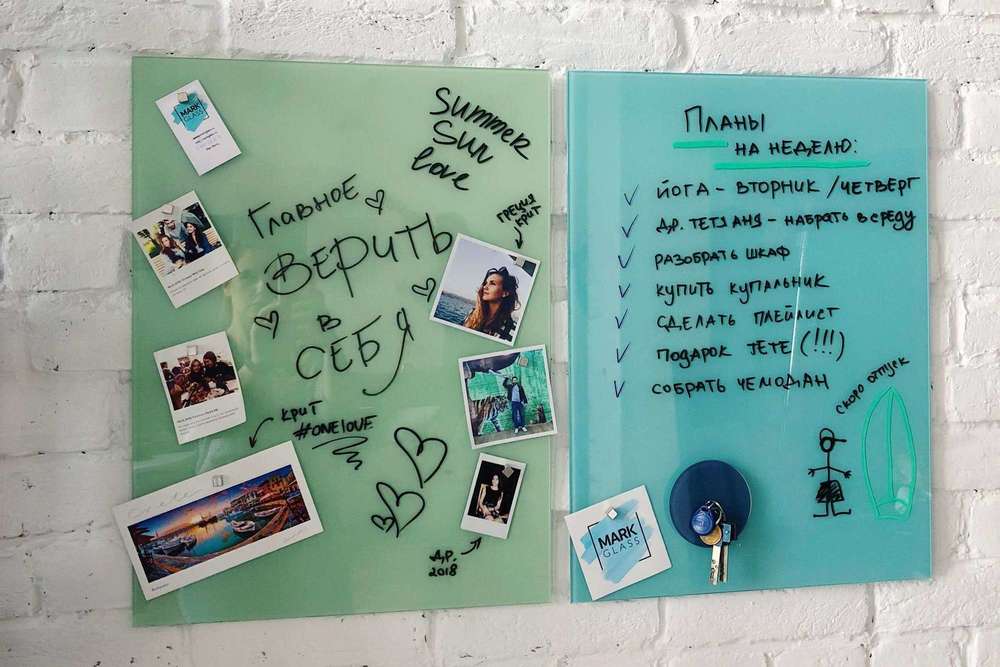 MARK
GLASS
Summer
Sun
love
Главное
ВЕРИТЬ
В
СЕБЯ
ГРЕЦИЯ
КРИТ
КРИТ
#ONELOVE
Д.Р.
2018
ПЛАНЫ
НА НЕДЕЛЮ:
ЙОГА - ВТОРНИК / ЧЕТВЕРГ
Д.Р. ТЕТ АНЯ - НАБРАТЬ В СРЕДУ
РАЗОБРАТЬ ШКАФ
КУПИТЬ КУПАЛЬНИК
СДЕЛАТЬ ПЛЕЙЛИСТ
ПОДАРОК ТЕТЕ (!!!)
СОБРАТЬ ЧЕМОДАН
СКОРО ОТПУСК
MARK
GLASS